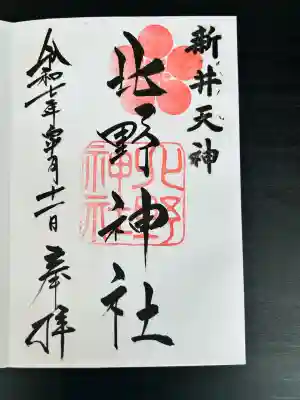 新井天神
北野神社
北野神社
令和七年 月十一日 奉拝